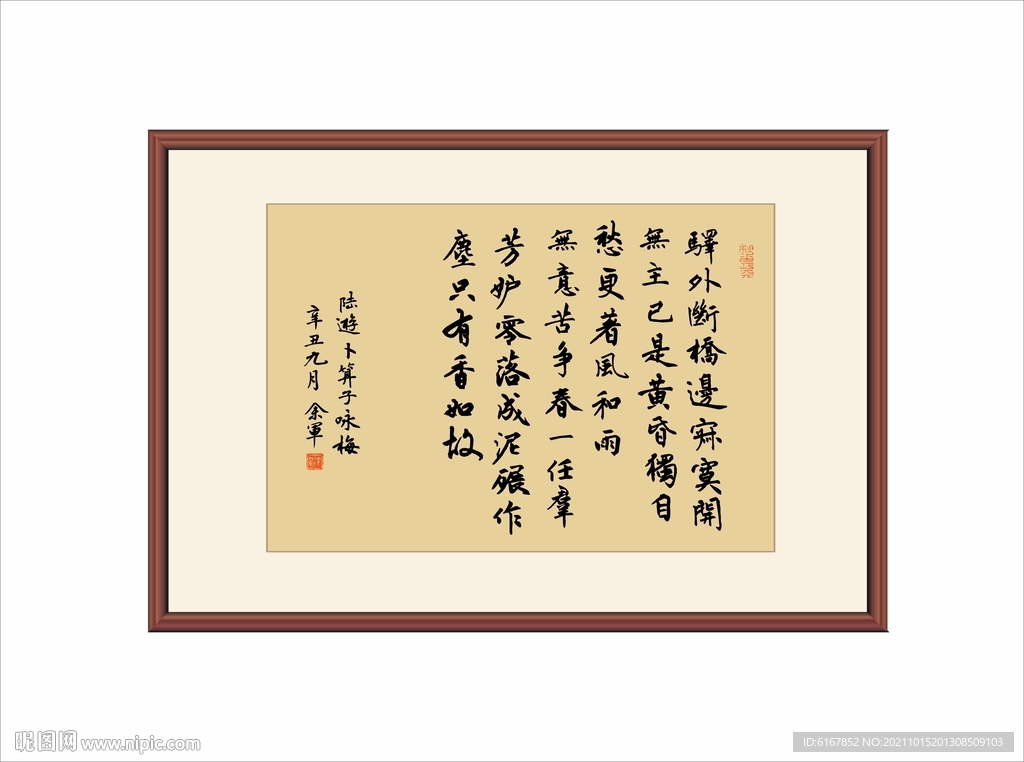 驛外斷橋邊寂寞開
無主已是黃昏獨自
愁更著風和雨
無意苦爭春一任羣
芳妒零落成泥碾作
塵只有香如故
陆遊卜算子咏梅
辛丑九月 余軍
昵图网 www.nipic.com
ID:6167852 NO:20211015201308509103